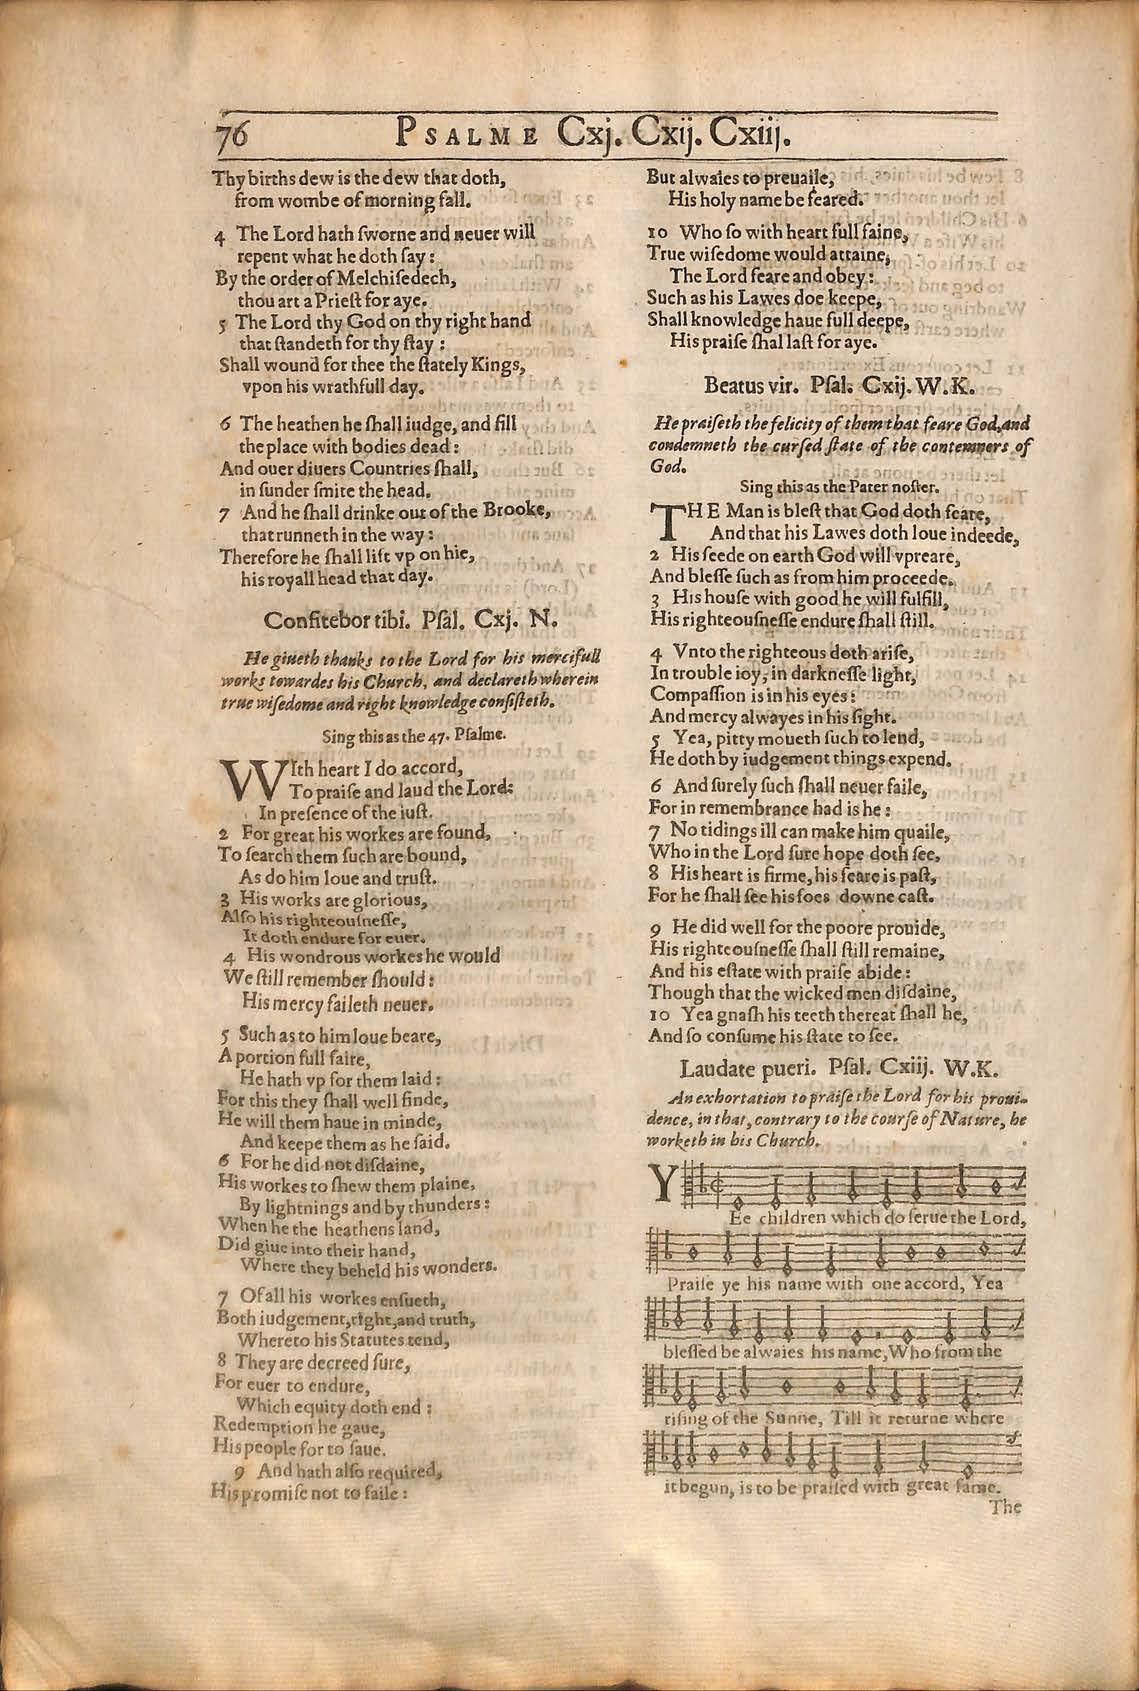 76 PSALME Cxj. Cxij. Cxiij.
Thy births dew is the dew that doth,
from wombe of morning fall.
4 The Lord hath ſworne and neuer will
repent what he doth ſay:
By the order of Melchiſedech,
thou art a Prieſt for aye.
5 The Lord thy God on thy right hand
that ſtandeth for thy ſtay:
Shall wound for thee the ſtately Kings,
vpon his wrathfull day.
6 The heathen he ſhall iudge, and fill
the place with bodies dead:
And ouer diuers Countries ſhall,
in ſunder ſmite the head.
7 And he ſhall drinke out of the Brooke,
that runneth in the way:
Therefore he ſhall lift vp on hie,
his royall head that day.
Confitebor tibi. Pſal. Cxj. N.
He giueth thanks to the Lord for his mercifull
works towardes his Church, and declareth wherein
true wiſedome and right knowledge conſiſteth.
Sing this as the 47. Pſalme.
WIth heart I do accord,
To praiſe and laud the Lord:
In preſence of the iuſt.
2 For great his workes are found,
To ſearch them ſuch are bound,
As do him loue and truſt.
3 His works are glorious,
Alſo his righteouſneſſe,
It doth endure for euer.
4 His wondrous workes he would
We ſtill remember ſhould:
His mercy faileth neuer.
5 Such as to him loue beare,
A portion full faire,
He hath vp for them laid:
For this they ſhall well finde,
He will them haue in minde,
And keepe them as he ſaid.
6 For he did not diſdaine,
His workes to ſhew them plaine,
By lightnings and by thunders:
When he the heathens land,
Did giue into their hand,
Where they beheld his wonders.
7 Of all his workes enſueth,
Both iudgement, right, and truth,
Whereto his Statutes tend,
8 They are decreed ſure,
For euer to endure,
Which equity doth end:
Redemption he gaue,
His people for to ſaue.
9 And hath alſo required,
His promiſe not to faile:
But alwaies to preuaile,
His holy name be feared.
10 Who ſo with heart full faine,
True wiſedome would attaine,
The Lord feare and obey:
Such as his Lawes doe keepe,
Shall knowledge haue full deepe,
His praiſe ſhal laſt for aye.
Beatus vir. Pſal. Cxij. W.K.
He praiſeth the felicity of them that feare God, and
condemneth the curſed ſtate of the contemners of
God.
Sing this as the Pater noſter.
THE Man is bleſt that God doth feare,
And that his Lawes doth loue indeede,
2 His ſeede on earth God will vpreare,
And bleſſe ſuch as from him proceede.
3 His houſe with good he will fulfill,
His righteouſneſſe endure ſhall ſtill.
4 Vnto the righteous doth ariſe,
In trouble ioy, in darkneſſe light,
Compaſſion is in his eyes:
And mercy alwayes in his ſight.
5 Yea, pitty moueth ſuch to lend,
He doth by iudgement things expend.
6 And ſurely ſuch ſhall neuer faile,
For in remembrance had is he:
7 No tidings ill can make him quaile,
Who in the Lord ſure hope doth ſee,
8 His heart is firme, his feare is paſt,
For he ſhall ſee his foes downe caſt.
9 He did well for the poore prouide,
His righteouſneſſe ſhall ſtill remaine,
And his eſtate with praiſe abide:
Though that the wicked men diſdaine,
10 Yea gnaſh his teeth thereat ſhall he,
And ſo conſume his ſtate to ſee.
Laudate pueri. Pſal. Cxiij. W.K.
An exhortation to praiſe the Lord for his proui-
dence, in that, contrary to the courſe of Nature, he
worketh in his Church.
YEe children which do ſerue the Lord,
Praiſe ye his name with one accord, Yea
bleſſed be alwaies his name, Who from the
riſing of the Sunne, Till it returne where
it begun, is to be praiſed with great fame.
The